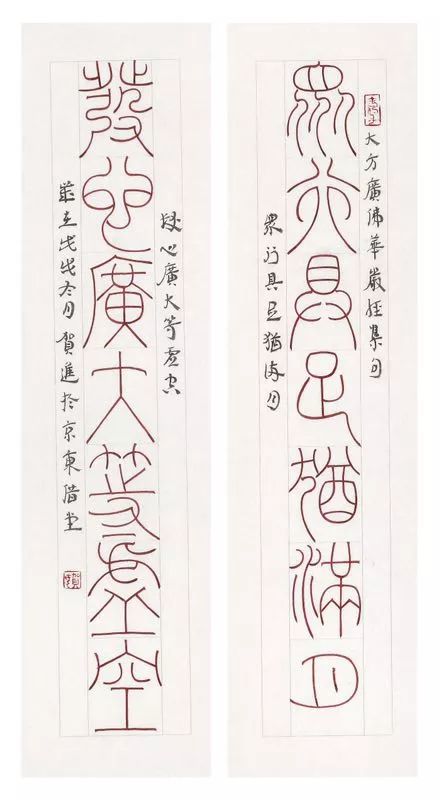 大方廣佛華嚴經集句
眾行具足猶滿月
衆行具足猶滿月
發心廣大等虛空
發心廣大等虛空
歲在戊戌冬月賀進於京東借堂